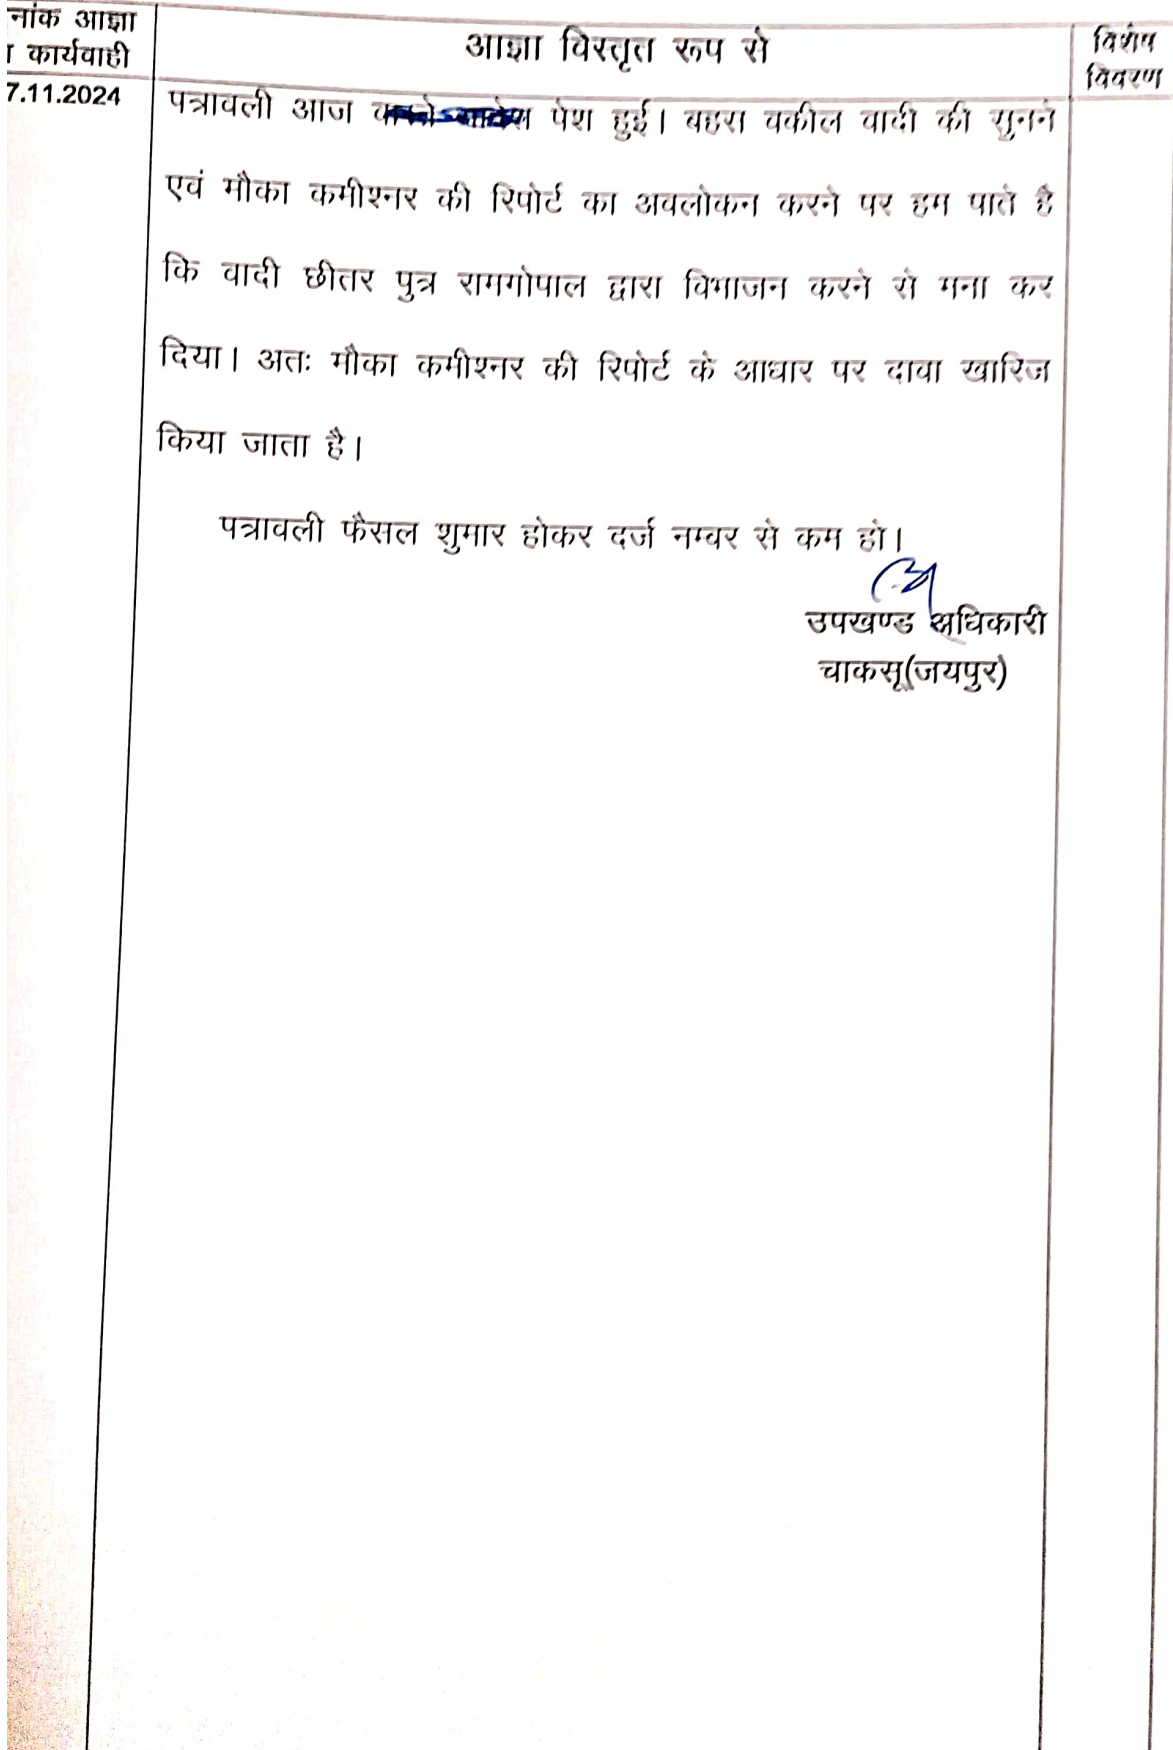 नांक आज्ञा
कार्यवाही
आज्ञा विस्तृत रूप से
विशेष
विवरण
7.11.2024
पत्रावली आज पेश हुई। बहस वकील वादी की सुनने
एवं मौका कमीश्नर की रिपोर्ट का अवलोकन करने पर हम पाते है
कि वादी छीतर पुत्र रामगोपाल द्वारा विभाजन करने से मना कर
दिया। अतः मौका कमीश्नर की रिपोर्ट के आधार पर दावा खारिज
किया जाता है।
पत्रावली फैसल शुमार होकर दर्ज नम्बर से कम हो।
उपखण्ड अधिकारी
चाकसू(जयपुर)